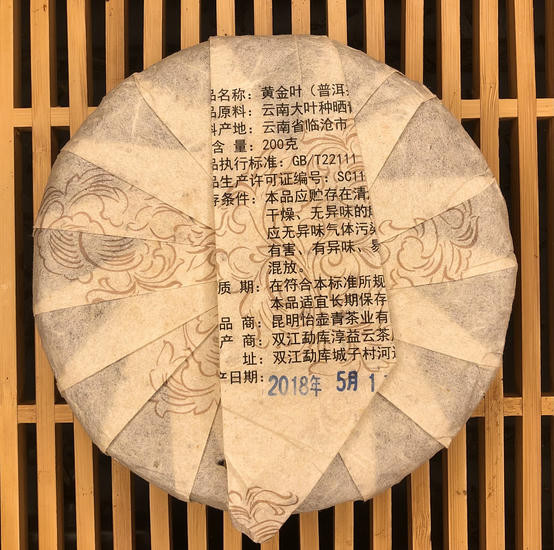 品名称：黄金叶（普洱
品原料：云南大叶种晒
产地：云南省临沧市
含 量：200克
品执行标准：GB/T22111
品生产许可证编号：SC11
存条件：本品应贮存在清
干燥、无异味的
应无异味气体污
有害、有异味、易
混放。
质 期：在符合本标准所规
本品适宜长期保存
品 商：昆明怡壶青茶业有
产 商：双江勐库淳益云茶
址：双江勐库城子村河
产日期：2018年 5月 1